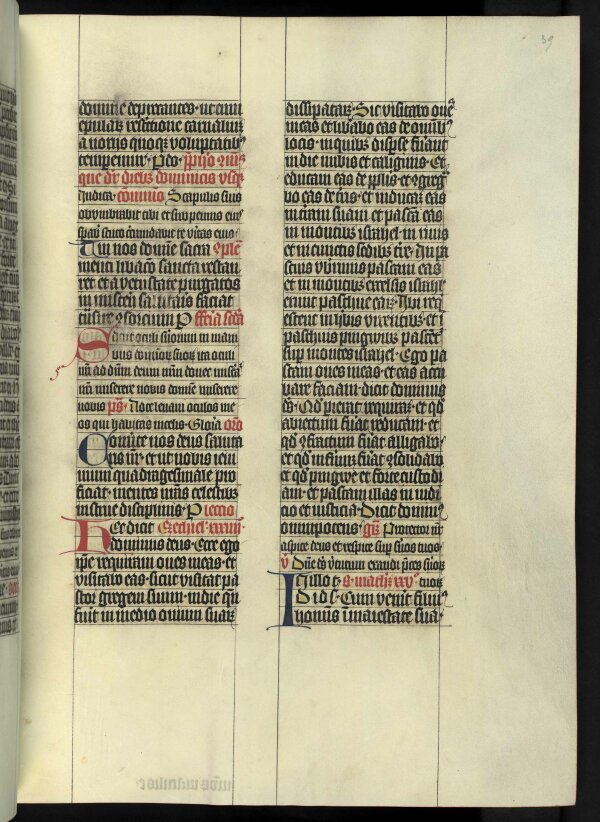 39
domine deprecantes · ut cum
epularum restrictione carnalium
a noxijs quoque voluptatibus
temperemur · Per
que dicitur diebus dominicis vsque
iudica · communio Scapulis suis
obumbrabit tibi et sub pennis eius
sperabis scuto circumdabit te veritas eius ·
Tui nos domine sacramenti
libacio sancta restau
ret et a vetustate purgatos
in misterij salutaris faciat
transire consorcium P feria secunda
Sicut oculi seruorum in mani
bus dominorum suorum ita oculi
nostri ad dominum deum nostrum donec misereatur
nostri miserere nobis domine miserere
nobis ps Ad te leuaui oculos me
os qui habitas in celis · Gloria oro
Conuerte nos deus saluta
ris noster · et ut nobis ieiu
nium quadragesimale pro
ficiat · mentes nostras celestibus
instrue disciplinis · P lectio
Hec dicit Ezechiel · xxxiiij
dominus deus · Ecce ego
ipse requiram oues meas · et
visitabo eas · sicut visitat pa
stor gregem suum · in die quando
fuerit in medio ouium suarum
dissipatarum · Sic visitabo oues
meas et liberabo eas de omnibus
locis · in quibus disperse fuerant
in die nubis et caliginis · Et
educam eas de populis · et congrega
bo eas de terris · et inducam eas
in terram suam et pascam eas
in montibus israhel · in riuis
et in cunctis sedibus terre · In pa
scuis vberrimis pascam eas
et in montibus excelsis israhel
erunt pascue earum · Ibi requi
escent in herbis virentibus · et in
pascuis pinguibus pascentur
super montes israhel · Ego pa
scam oues meas · et eas accu
bare faciam · dicit dominus
deus · Quod perierat requiram · et quod
abiectum fuerat reducam · et
quod confractum fuerat alligabo ·
et quod infirmum fuerat consolidabo
et quod pingwe et forte custodi
am · et pascam illas in iudi
cio et iusticia · Dicit dominus
omnipotens · gr Protector noster
aspice deus et respice super seruos tuos ·
v Domine deus virtutum exaudi preces seruorum
tuorum
In illo tempore · s · matheum xxv
Dixit Cum venerit filius
hominis in maiestate sua ·